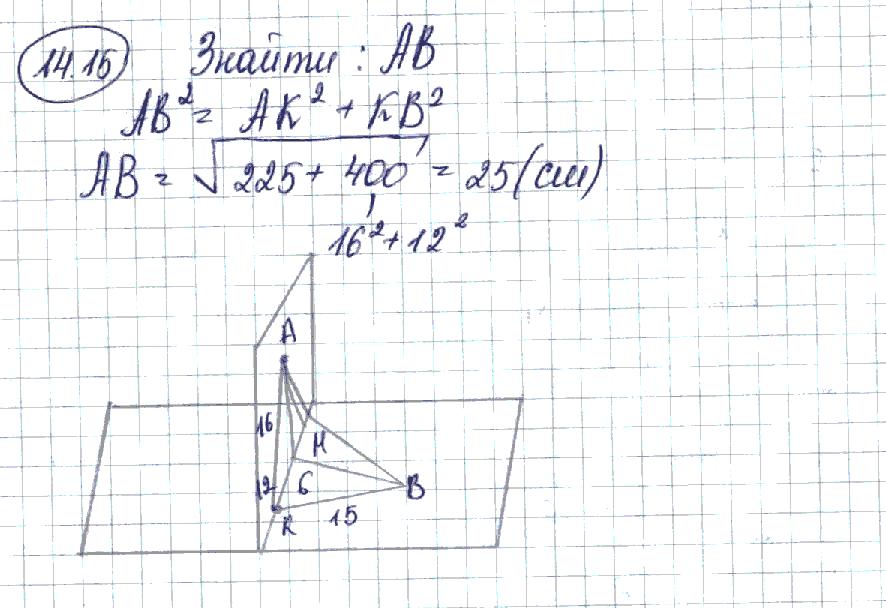 14.15 Знайти : AB
AB² = AK² + KB²
AB = √225 + 400 = 25 (см)
16² + 12²
A
16
H
12 6
B
K
15